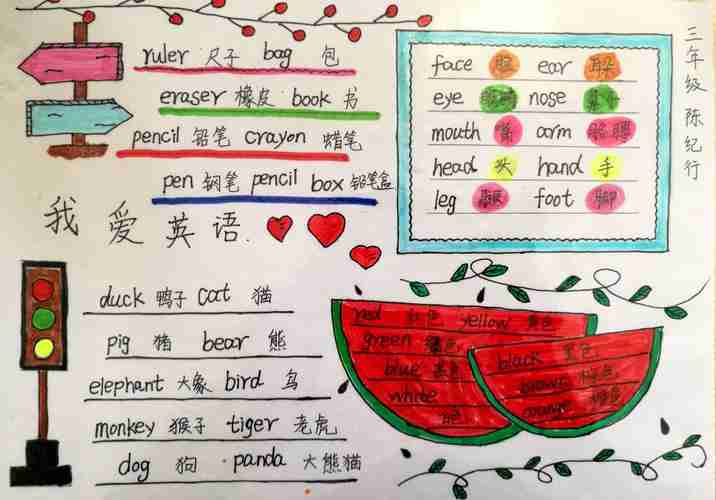 ruler 尺子 bag 包
eraser 橡皮 book 书
pencil 铅笔 crayon 蜡笔
pen 钢笔 pencil box 铅笔盒
我爱英语
face 脸 ear 耳朵
eye 眼睛 nose 鼻子
mouth 嘴 arm 胳膊
head 头 hand 手
leg 腿 foot 脚
三年级 陈纪行
duck 鸭子 cat 猫
pig 猪 bear 熊
elephant 大象 bird 鸟
monkey 猴子 tiger 老虎
dog 狗 panda 大熊猫
red 红色 yellow 黄色
green 绿色
blue 蓝色
white
色
black 黑色
brown 棕色
orange 橙色